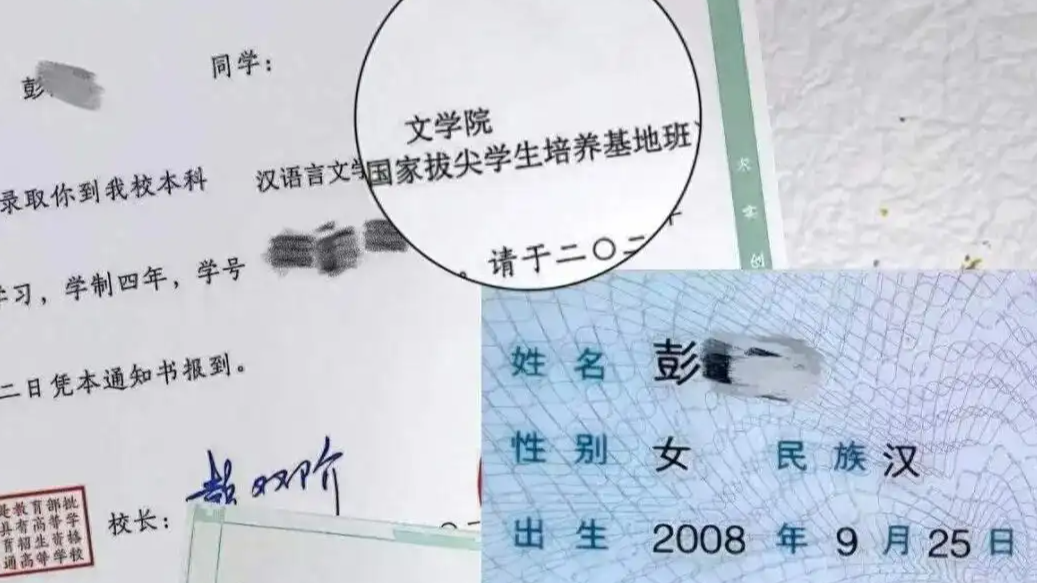 彭
同学：
文学院
国家拔尖学生培养基地班
录取你到我校本科 汉语言文学
学习，学制四年，学号
。请于二〇二
二日凭本通知书报到。
校长：
是教育部批
具有高等学
育招生资格
通高等学校
求实创
姓名 彭
性别 女 民族 汉
出生 2008 年 9 月 25 日